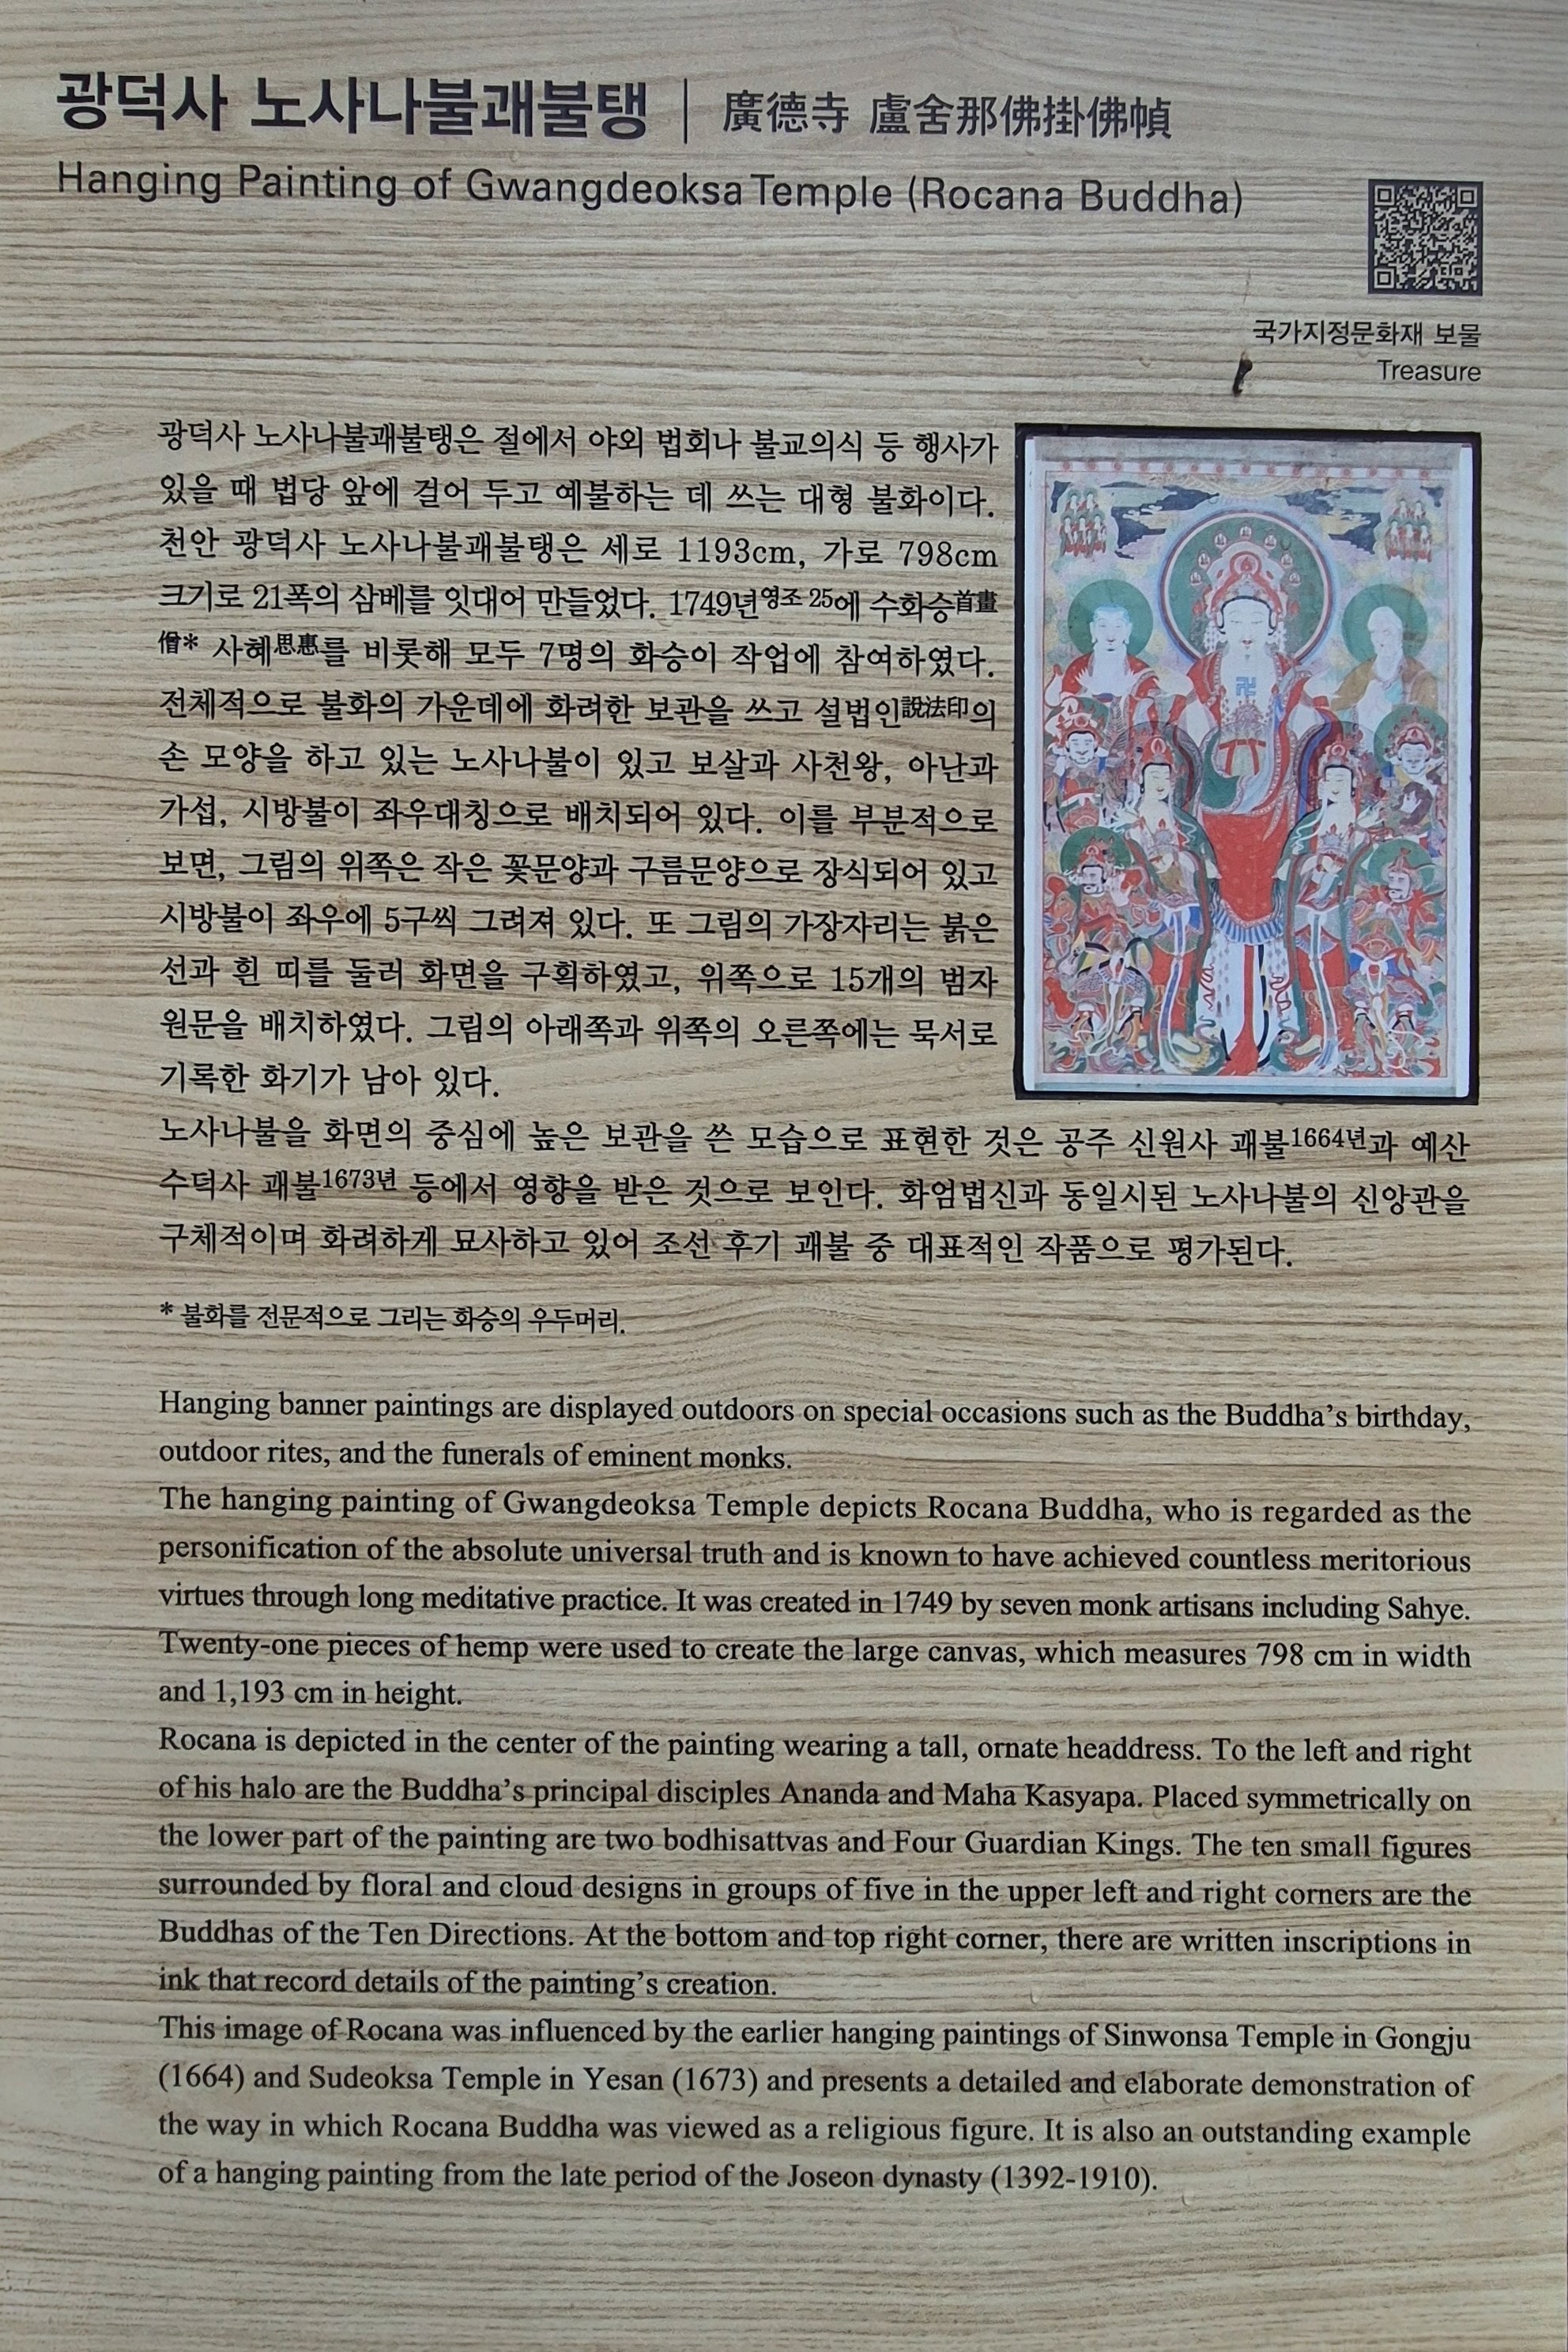 광덕사 노사나불괘불탱 | 廣德寺 盧舍那佛掛佛幀
Hanging Painting of Gwangdeoksa Temple (Rocana Buddha)
국가지정문화재 보물
Treasure
광덕사 노사나불괘불탱은 절에서 야외 법회나 불교의식 등 행사가
있을 때 법당 앞에 걸어 두고 예불하는 데 쓰는 대형 불화이다.
천안 광덕사 노사나불괘불탱은 세로 1193cm, 가로 798cm
크기로 21폭의 삼베를 잇대어 만들었다. 1749년영조 25에 수화승首畫
僧* 사혜思惠를 비롯해 모두 7명의 화승이 작업에 참여하였다.
전체적으로 불화의 가운데에 화려한 보관을 쓰고 설법인說法印의
손 모양을 하고 있는 노사나불이 있고 보살과 사천왕, 아난과
가섭, 시방불이 좌우대칭으로 배치되어 있다. 이를 부분적으로
보면, 그림의 위쪽은 작은 꽃문양과 구름문양으로 장식되어 있고
시방불이 좌우에 5구씩 그려져 있다. 또 그림의 가장자리는 붉은
선과 흰 띠를 둘러 화면을 구획하였고, 위쪽으로 15개의 범자
원문을 배치하였다. 그림의 아래쪽과 위쪽의 오른쪽에는 묵서로
기록한 화기가 남아 있다.
노사나불을 화면의 중심에 높은 보관을 쓴 모습으로 표현한 것은 공주 신원사 괘불1664년과 예산
수덕사 괘불1673년 등에서 영향을 받은 것으로 보인다. 화엄법신과 동일시된 노사나불의 신앙관을
구체적이며 화려하게 묘사하고 있어 조선 후기 괘불 중 대표적인 작품으로 평가된다.
* 불화를 전문적으로 그리는 화승의 우두머리.
Hanging banner paintings are displayed outdoors on special occasions such as the Buddha's birthday,
outdoor rites, and the funerals of eminent monks.
The hanging painting of Gwangdeoksa Temple depicts Rocana Buddha, who is regarded as the
personification of the absolute universal truth and is known to have achieved countless meritorious
virtues through long meditative practice. It was created in 1749 by seven monk artisans including Sahye.
Twenty-one pieces of hemp were used to create the large canvas, which measures 798 cm in width
and 1,193 cm in height.
Rocana is depicted in the center of the painting wearing a tall, ornate headdress. To the left and right
of his halo are the Buddha's principal disciples Ananda and Maha Kasyapa. Placed symmetrically on
the lower part of the painting are two bodhisattvas and Four Guardian Kings. The ten small figures
surrounded by floral and cloud designs in groups of five in the upper left and right corners are the
Buddhas of the Ten Directions. At the bottom and top right corner, there are written inscriptions in
ink that record details of the painting's creation.
This image of Rocana was influenced by the earlier hanging paintings of Sinwonsa Temple in Gongju
(1664) and Sudeoksa Temple in Yesan (1673) and presents a detailed and elaborate demonstration of
the way in which Rocana Buddha was viewed as a religious figure. It is also an outstanding example
of a hanging painting from the late period of the Joseon dynasty (1392-1910).